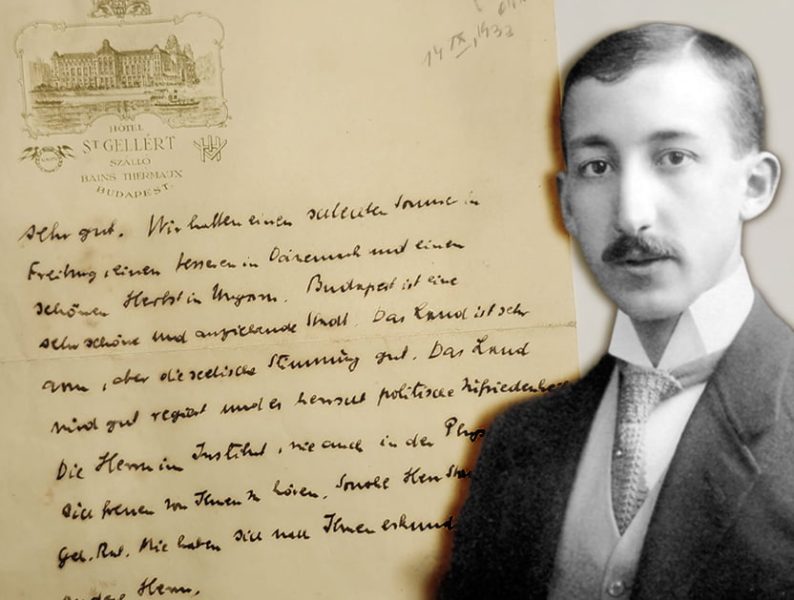 14 IX. 1933
HOTEL
ST GELLÉRT
SZÁLLÓ
BAINS THERMAUX
BUDAPEST.
sehr gut. Wir hatten einen schlechten Sommer in
Freiburg, einen besseren in Dänemark und einen
schönen Herbst in Ungarn. Budapest ist eine
sehr schöne und anziehende Stadt. Das Land ist sehr
arm, aber die seelische Stimmung gut. Das Land
wird gut regiert und es herrscht politische Zufriedenheit
Die Herrn im Institut, wie auch in der Phys
sich freuen von Ihnen zu hören. Sowohl Herr
Geh. Rat. Mie haben sich nach Ihnen erkund
andere Herrn.